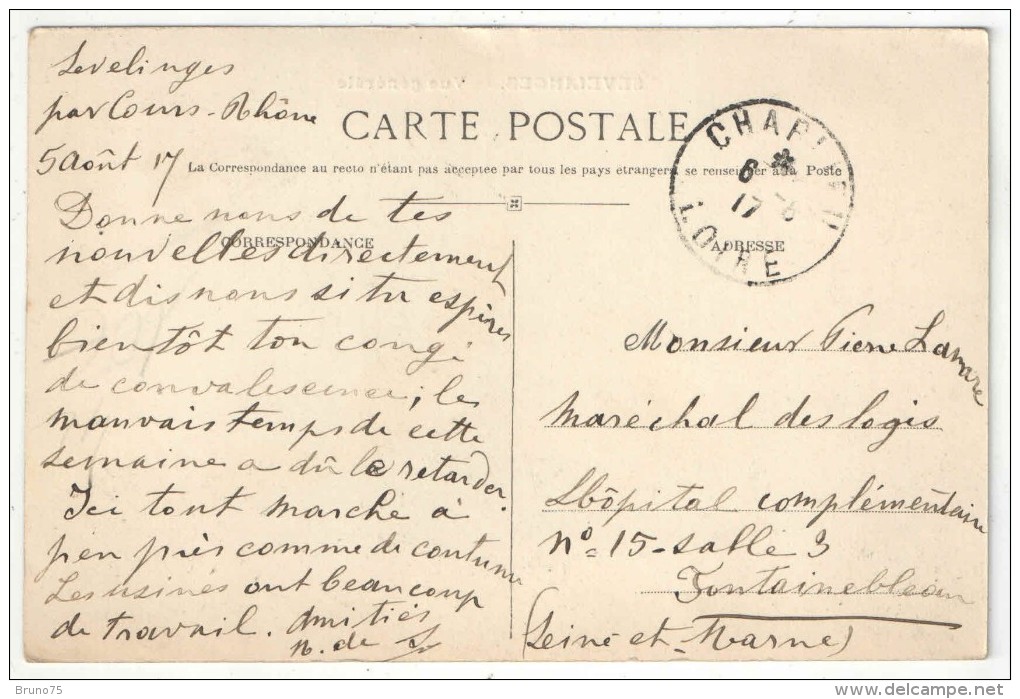 Sevelinges
par Cours-Rhône
5 Août 17
SEVELINGES. Vue générale
CARTE POSTALE
La Correspondance au recto n'étant pas acceptee par tous les pays étrangers se renseigner à la Poste
CORRESPONDANCE
Donne nous de tes
nouvelles directement
et dis nous si tu espères
bientôt ton congé
de convalescence; le
mauvais temps de cette
semaine a dû le retarder.
Ici tout marche à
peu près comme de coutume
Les usines ont beaucoup
de travail. Amitiés
N. de L
CHARLIEU
6 -8
17
LOIRE
ADRESSE
Monsieur Pierre Lamare
Maréchal des logis
Hôpital complémentaire
n° 15 - salle 3
Fontainebleau
(Seine et Marne)
Bruno75
http://www.delcampe.net